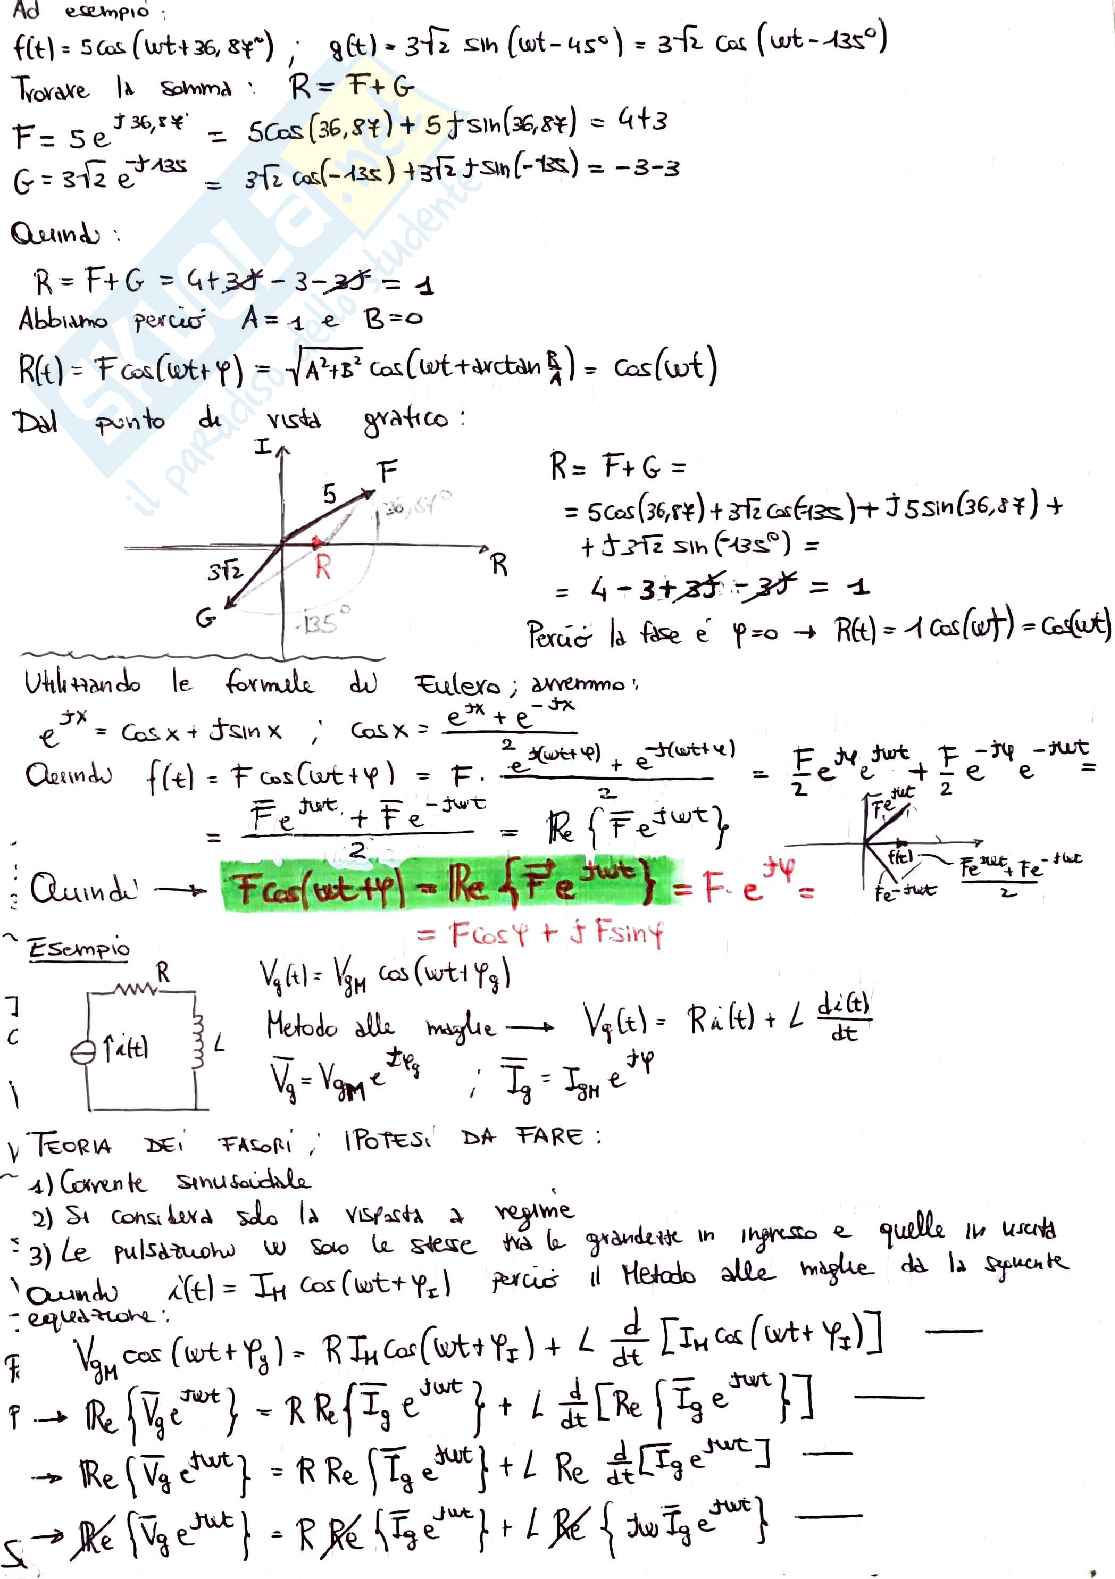 Ad esempio:
f(t) = 5cos(ωt+36,87°) ; g(t) = 3√2 sin(ωt-45°) = 3√2 cos(ωt-135°)
Trovare la somma: R = F+G
F = 5e^{j36,87°} = 5cos(36,87) + 5jsin(36,87) = 4+3
G = 3√2 e^{-j135} = 3√2 cos(-135) + 3√2 jsin(-135) = -3-3
Quindi:
R = F+G = 4+3j-3-3j = 1
Abbiamo perciò A=1 e B=0
R(t) = Fcos(ωt+φ) = √(A²+B²) cos(ωt+arctan B/A) = cos(ωt)
Dal punto di vista grafico:
I
F
5
36,87°
R
R
3√2
G
-135°
R = F+G =
= 5cos(36,87)+3√2cos(-135)+j5sin(36,87)+
+j3√2 sin(-135°) =
= 4-3+3j-3j = 1
Perciò la fase è φ=0 → R(t) = 1cos(ωt) = cos(ωt)
Utilizzando le formule di Eulero; avremmo:
e^{jx} = cosx + jsinx ; cosx = (e^{jx} + e^{-jx})/2
Quindi f(t) = Fcos(ωt+φ) = F · (e^{j(ωt+φ)} + e^{-j(ωt+φ)})/2 = F/2 e^{jφ}e^{jωt} + F/2 e^{-jφ}e^{-jωt} =
= (F̅e^{jωt} + F̅e^{-jωt})/2 = Re{F̅e^{jωt}}
F̅e^{jωt}
f(t)
F̅e^{-jωt}
(F̅e^{jωt} + F̅e^{-jωt})/2
Quindi → Fcos(ωt+φ) = Re{F̅e^{jωt}} = F·e^{jφ} =
= Fcosφ + jFsinφ
Esempio
R
i(t)
L
Vg(t) = VgM cos(ωt+φg)
Metodo alle maglie → Vg(t) = Ri(t) + L di(t)/dt
V̅g = VgM e^{jφg} ; I̅g = IgM e^{jφ}
TEORIA DEI FASORI; IPOTESI DA FARE:
1) Corrente sinusoidale
2) Si considera solo la risposta a regime
3) Le pulsazioni ω sono le stesse tra le grandezze in ingresso e quelle in uscita
Quindi i(t) = IM cos(ωt+φI) perciò il Metodo alle maglie dà la seguente
equazione:
VgM cos(ωt+φg) = R IM cos(ωt+φI) + L d/dt [IM cos(ωt+φI)] —
→ Re{V̅g e^{jωt}} = R Re{I̅g e^{jωt}} + L d/dt [Re{I̅g e^{jωt}}] —
→ Re{V̅g e^{jωt}} = R Re{I̅g e^{jωt}} + L Re d/dt [I̅g e^{jωt}] —
→ Re{V̅g e^{jωt}} = R Re{I̅g e^{jωt}} + L Re{jω I̅g e^{jωt}} —
SKUOLA.net
il paradiso dello studente